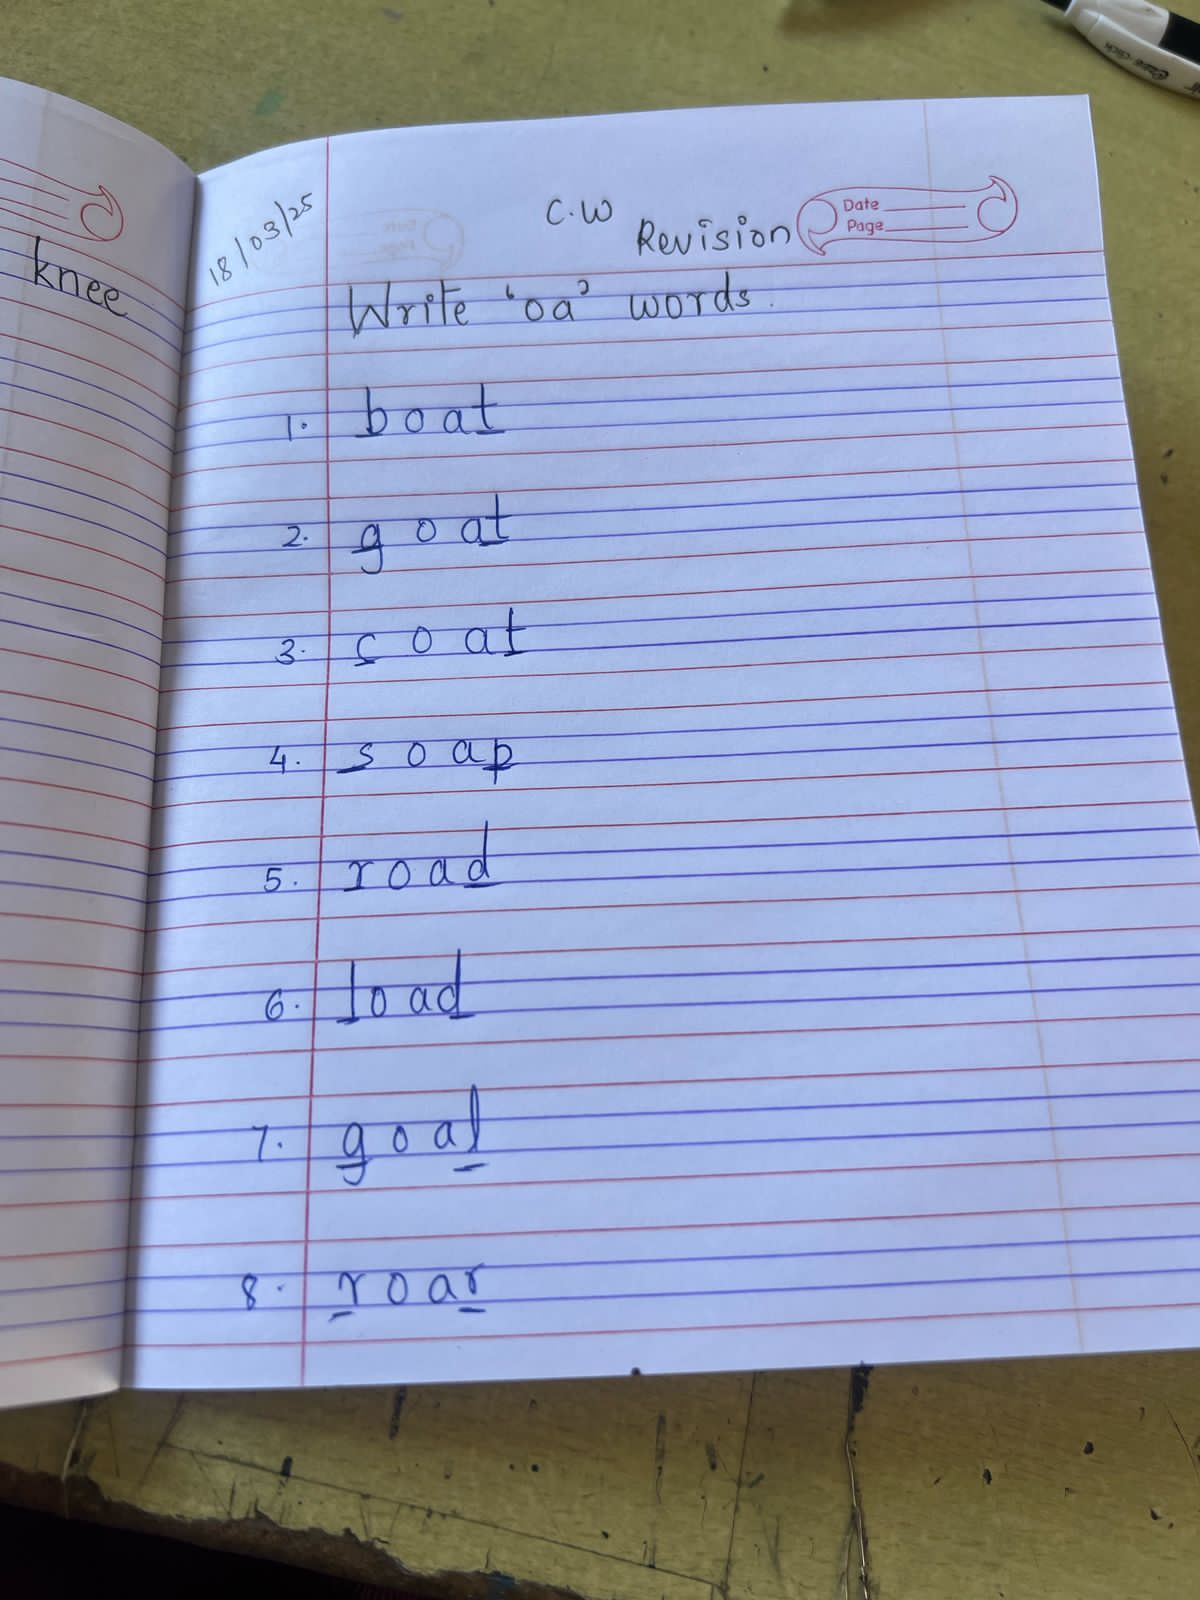 knee
18/03/25
C.W
Revision
Date
Page
Write 'oa' words.
1. boat
2. goat
3. coat
4. soap
5. road
6. load
7. goal
8. roar